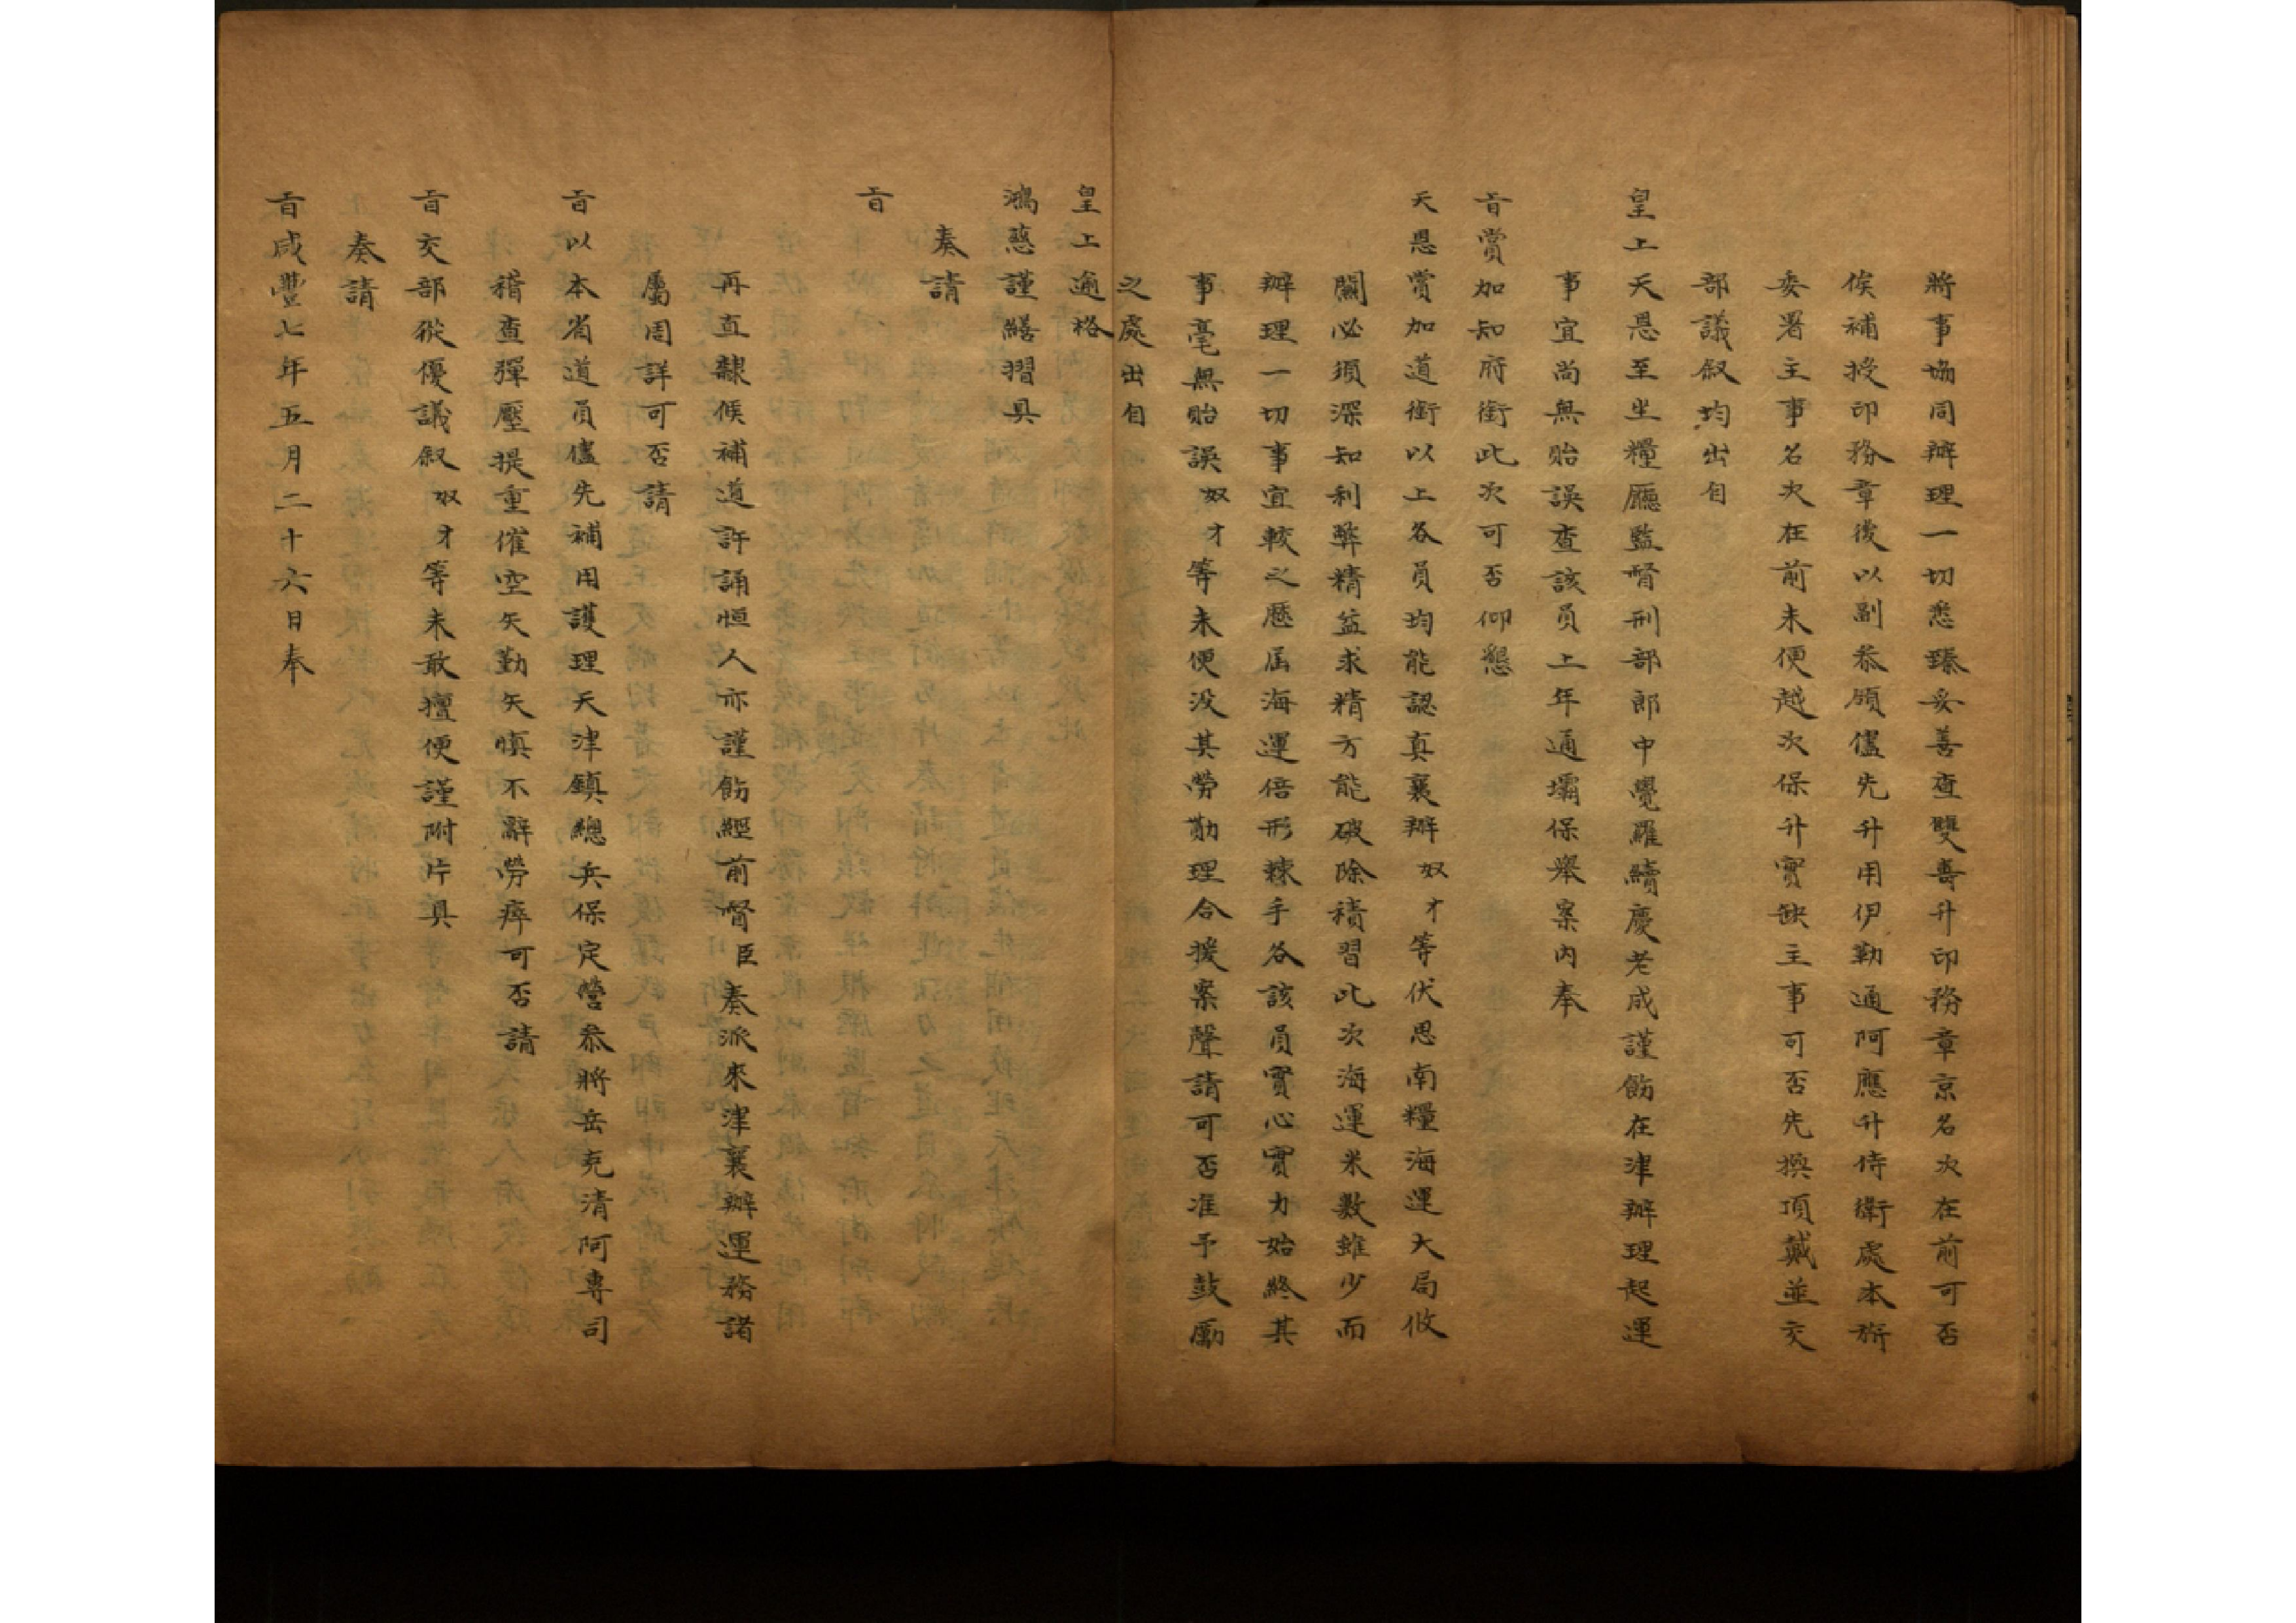 將事協同辦理一切悉臻妥善查雙喜升印務章京名次在前可否
俟補授印務章後以副叅領儘先升用伊勒通阿應升侍衛處本旂
委署主事名次在前未便越次保升實缺主事可否先換頂戴並交
部議叙均出自
皇上天恩至坐糧廳監督刑部郎中覺羅續慶老成謹飭在津辦理起運
事宜尚無貽誤查該員上年通壩保舉案內奉
旨賞加知府銜此次可否仰懇
天恩賞加道銜以上各員均能認真襄辦奴才等伏思南糧海運大局攸
關必須深知利弊精益求精方能破除積習此次海運米數雖少而
辦理一切事宜較之歷屆海運倍形棘手各該員實心實力始終其
事毫無貽誤奴才等未便没其勞勩理合援案聲請可否准予鼓勵
之處出自
皇上逾格
鴻慈謹繕摺具
奏請
旨
再直隸候補道許誦恒人亦謹飭經前督臣奏派來津襄辦運務諸
屬周詳可否請
旨以本省道員儘先補用護理天津鎮總兵保定營叅將岳克清阿專司
稽查彈壓提重催空矢勤矢慎不辭勞瘁可否請
旨交部從優議叙奴才等未敢擅便謹附片具
奏請
旨咸豐七年五月二十六日奉